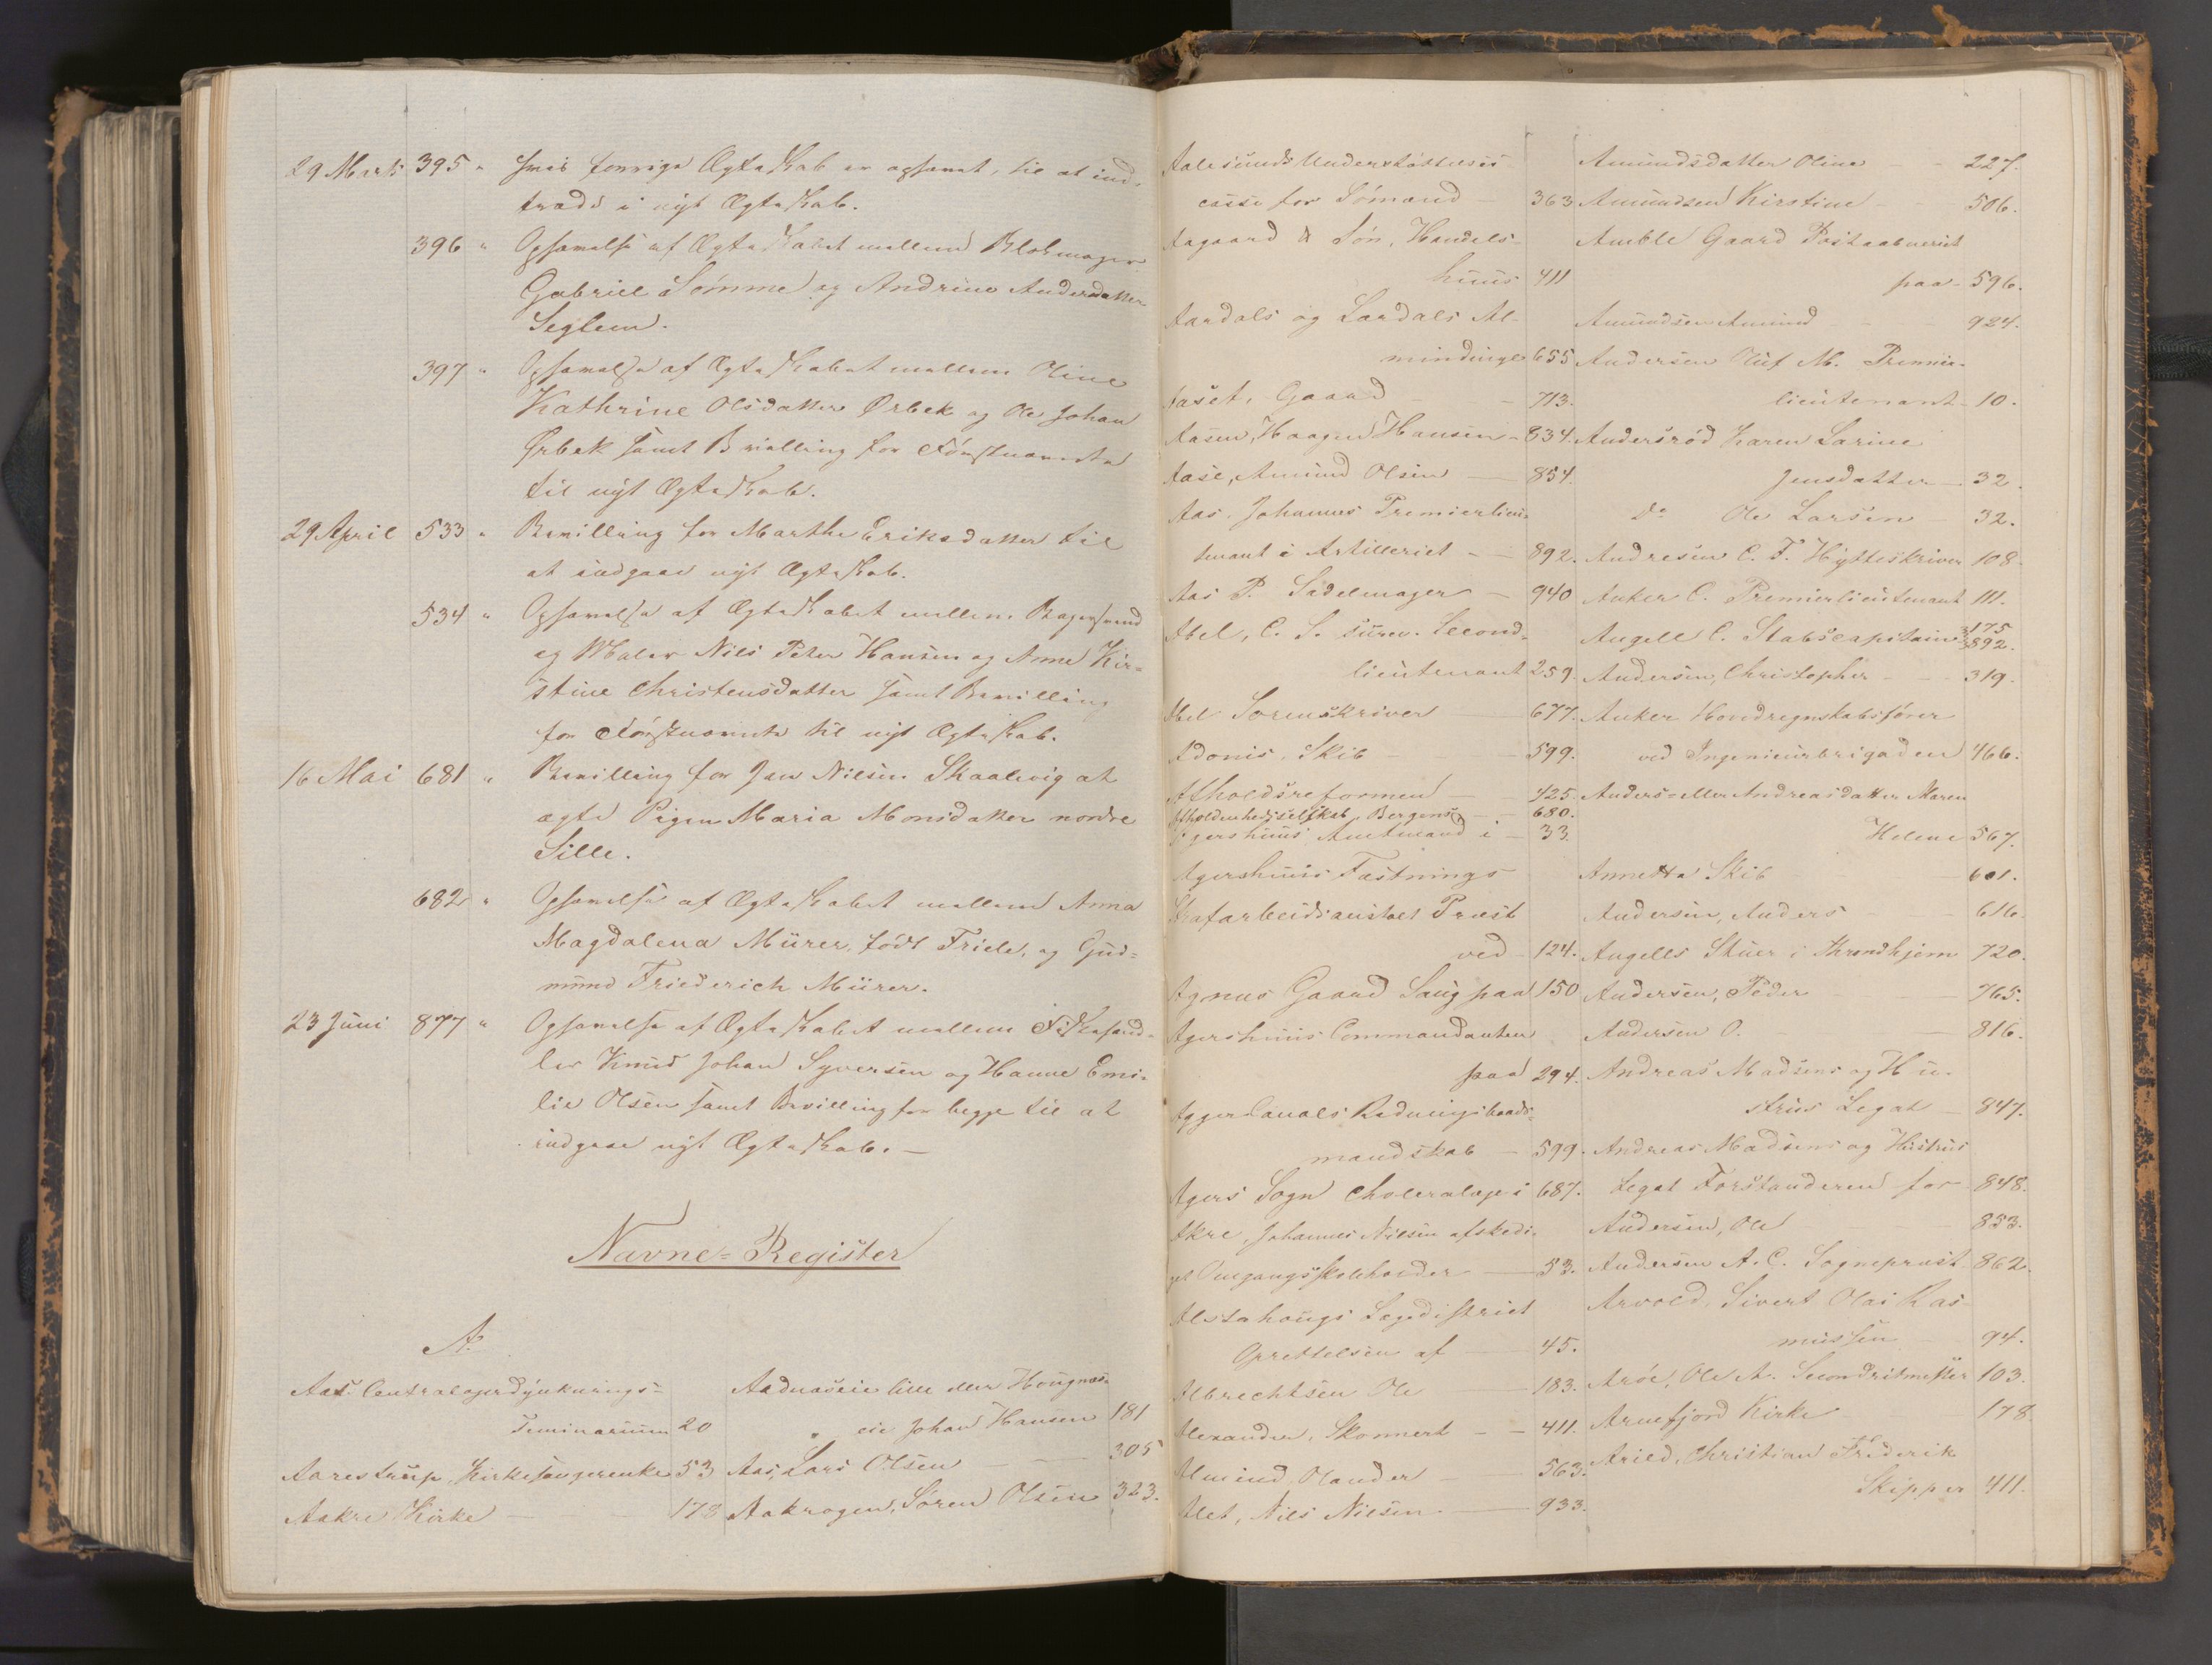 29 Marts 395 " hvis forrige Ægteskab er ophævet, til at ind-
træde i nyt Ægteskab.
396 " Ophævelse af Ægteskabet mellem Blokmager
Gabriel Sömme og Andrine Andersdatter
Seglem.
397 " Ophævelse af Ægteskabet mellem Oline
Kathrine Olsdatter Ørbek og Ole Johan
Ørbek samt Bevilling for Förstnævnte
til nyt Ægteskab.
29 April 533 " Bevilling for Marthe Eriksdatter til
at indgaae nyt Ægteskab.
534 " Ophævelse af Ægteskabet mellem Bagersvend
og Maler Nils Peter Hansen og Anne Kir=
stine Christensdatter samt Bevilling
for Förstnævnte til nyt Ægteskab.
16 Mai 681 " Bevilling for Jens Nilsen Skaalevig at
ægte Pigen Maria Monsdatter nordre
Sille.
682 " Ophævelse af Ægteskabet mellem Anna
Magdalena Mürer, född Friele, og Gud=
mund Friederich Mürer.
23 Juni 877 " Ophævelse af Ægteskabet mellem Fiskehand-
ler Knud Johan Syversen og Hanne Emi-
lie Olsen samt Bevilling for begge til at
indgaae nyt Ægteskab. —
Navne=Register
A.
Aas Centralagerdyrknings=
Seminarium 20
Aarestrup, Kirkesangerenke 53
Aakre Kirke — 178
Aadnaseie lille eller Hougnæs-
eie Johan Hansen 181
Aas, Lars Olsen — 305
Aakrogen, Sören Olsen 323.
Aalesunds Understöttelses
casse for Sömænd — 363
Aagaard & Sön, Handels-
huus 411
Aardals og Lærdals Al-
mindinge 655
Aaset, Gaard — 713.
Aasen, Haagen Hansen — 834.
Aase, Amund Olsen — 854.
Aas, Johannes Premierlieu-
tenant i Artilleriet — 892.
Aas P. Sadelmager — 940
Abel, C. S. surn. Second-
lieutenant 259.
Abel Sorenskriver 677.
Adonis, Skib — 599.
Afholdsreformen — 425.
Afholdenhedsselskab, Bergens — 680.
Agershuus Amtmand i — 33.
Agershuus Fæstnings
Strafarbeidsanstalt Præst
ved — 124.
Agnus Gaard Saug paa 150
Agershuus Commandanten
paa 294.
Agger Canals Rednings baads-
mandskab — 599.
Agers Sogn Choleralæge i 687.
Akre, Johannes Nilsen afskedi-
get Omgangsskoleholder — 53.
Alstahougs Lægedistrict
Oprettelsen af — 45.
Albrechtsen Ole — 183.
Alexander, Skonnert — 411.
Almind, Olander — 563.
Alet, Nils Nilsen — 933.
Amundsdatter Oline — 227.
Amundsen Kirstine — 506.
Amble Gaard Postaabneriet
paa — 596.
Amundsen Amund — 924.
Andersen Oluf M. Premier-
lieutenant — 10.
Andersröd Karen Larine
Jensdatter — 32.
Do Ole Larsen — 32.
Andresen C. F. Hytteskriver 108.
Anker C. Premierlieutenant 111.
Angell C. Stabscapitain 175
892.
Andersen, Christopher — 319.
Anker Hovedregnskabsförer
ved Ingenieurbrigaden 466.
Anders= eller Andreasdatter Maren
Helene 567.
Annetta Skib — 601.
Andersen, Anders — 616.
Angells Stuer i Throndhjem 720.
Andersen, Peder — 765.
Andersen O. — 816.
Andreas Madsens og Hu-
strues Legat 847.
Andreas Madsens og Hustrues
Legat Forstanderen for 848.
Andersen, Ole — 853.
Andersen A. C. Sogneprest 862.
Arvold, Sivert Olai Ras-
mussen 94.
Aröe, Ole A. Secondritmester 103.
Arnefjord Kirke — 178
Aried, Christian Frederik
Skipper 411.